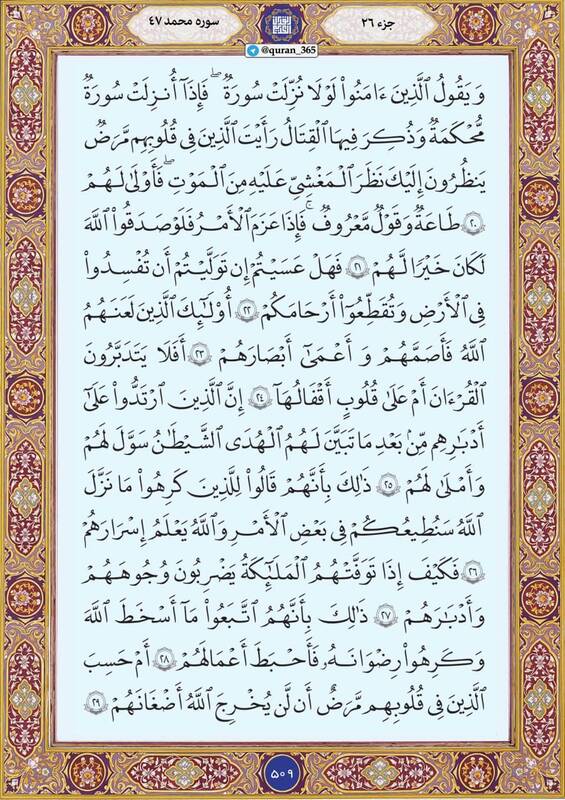 جزء ۲۶
سوره محمد ۴۷
@quran_365
وَيَقُولُ ٱلَّذِينَ ءَامَنُوا۟ لَوْلَا نُزِّلَتْ سُورَةٌ ۖ فَإِذَآ أُنزِلَتْ سُورَةٌ
مُّحْكَمَةٌ وَذُكِرَ فِيهَا ٱلْقِتَالُ رَأَيْتَ ٱلَّذِينَ فِى قُلُوبِهِم مَّرَضٌ
يَنظُرُونَ إِلَيْكَ نَظَرَ ٱلْمَغْشِىِّ عَلَيْهِ مِنَ ٱلْمَوْتِ ۖ فَأَوْلَىٰ لَهُمْ
۲۰ طَاعَةٌ وَقَوْلٌ مَّعْرُوفٌ ۚ فَإِذَا عَزَمَ ٱلْأَمْرُ فَلَوْ صَدَقُوا۟ ٱللَّهَ
لَكَانَ خَيْرًا لَّهُمْ ۲۱ فَهَلْ عَسَيْتُمْ إِن تَوَلَّيْتُمْ أَن تُفْسِدُوا۟
فِى ٱلْأَرْضِ وَتُقَطِّعُوٓا۟ أَرْحَامَكُمْ ۲۲ أُو۟لَـٰٓئِكَ ٱلَّذِينَ لَعَنَهُمُ
ٱللَّهُ فَأَصَمَّهُمْ وَأَعْمَىٰٓ أَبْصَـٰرَهُمْ ۲۳ أَفَلَا يَتَدَبَّرُونَ
ٱلْقُرْءَانَ أَمْ عَلَىٰ قُلُوبٍ أَقْفَالُهَآ ۲۴ إِنَّ ٱلَّذِينَ ٱرْتَدُّوا۟ عَلَىٰٓ
أَدْبَـٰرِهِم مِّنۢ بَعْدِ مَا تَبَيَّنَ لَهُمُ ٱلْهُدَى ٱلشَّيْطَـٰنُ سَوَّلَ لَهُمْ
وَأَمْلَىٰ لَهُمْ ۲۵ ذَٰلِكَ بِأَنَّهُمْ قَالُوا۟ لِلَّذِينَ كَرِهُوا۟ مَا نَزَّلَ
ٱللَّهُ سَنُطِيعُكُمْ فِى بَعْضِ ٱلْأَمْرِ وَٱللَّهُ يَعْلَمُ إِسْرَارَهُمْ
۲۶ فَكَيْفَ إِذَا تَوَفَّتْهُمُ ٱلْمَلَـٰٓئِكَةُ يَضْرِبُونَ وُجُوهَهُمْ
وَأَدْبَـٰرَهُمْ ۲۷ ذَٰلِكَ بِأَنَّهُمُ ٱتَّبَعُوا۟ مَآ أَسْخَطَ ٱللَّهَ
وَكَرِهُوا۟ رِضْوَٰنَهُۥ فَأَحْبَطَ أَعْمَـٰلَهُمْ ۲۸ أَمْ حَسِبَ
ٱلَّذِينَ فِى قُلُوبِهِم مَّرَضٌ أَن لَّن يُخْرِجَ ٱللَّهُ أَضْغَـٰنَهُمْ ۲۹
۵۰۹